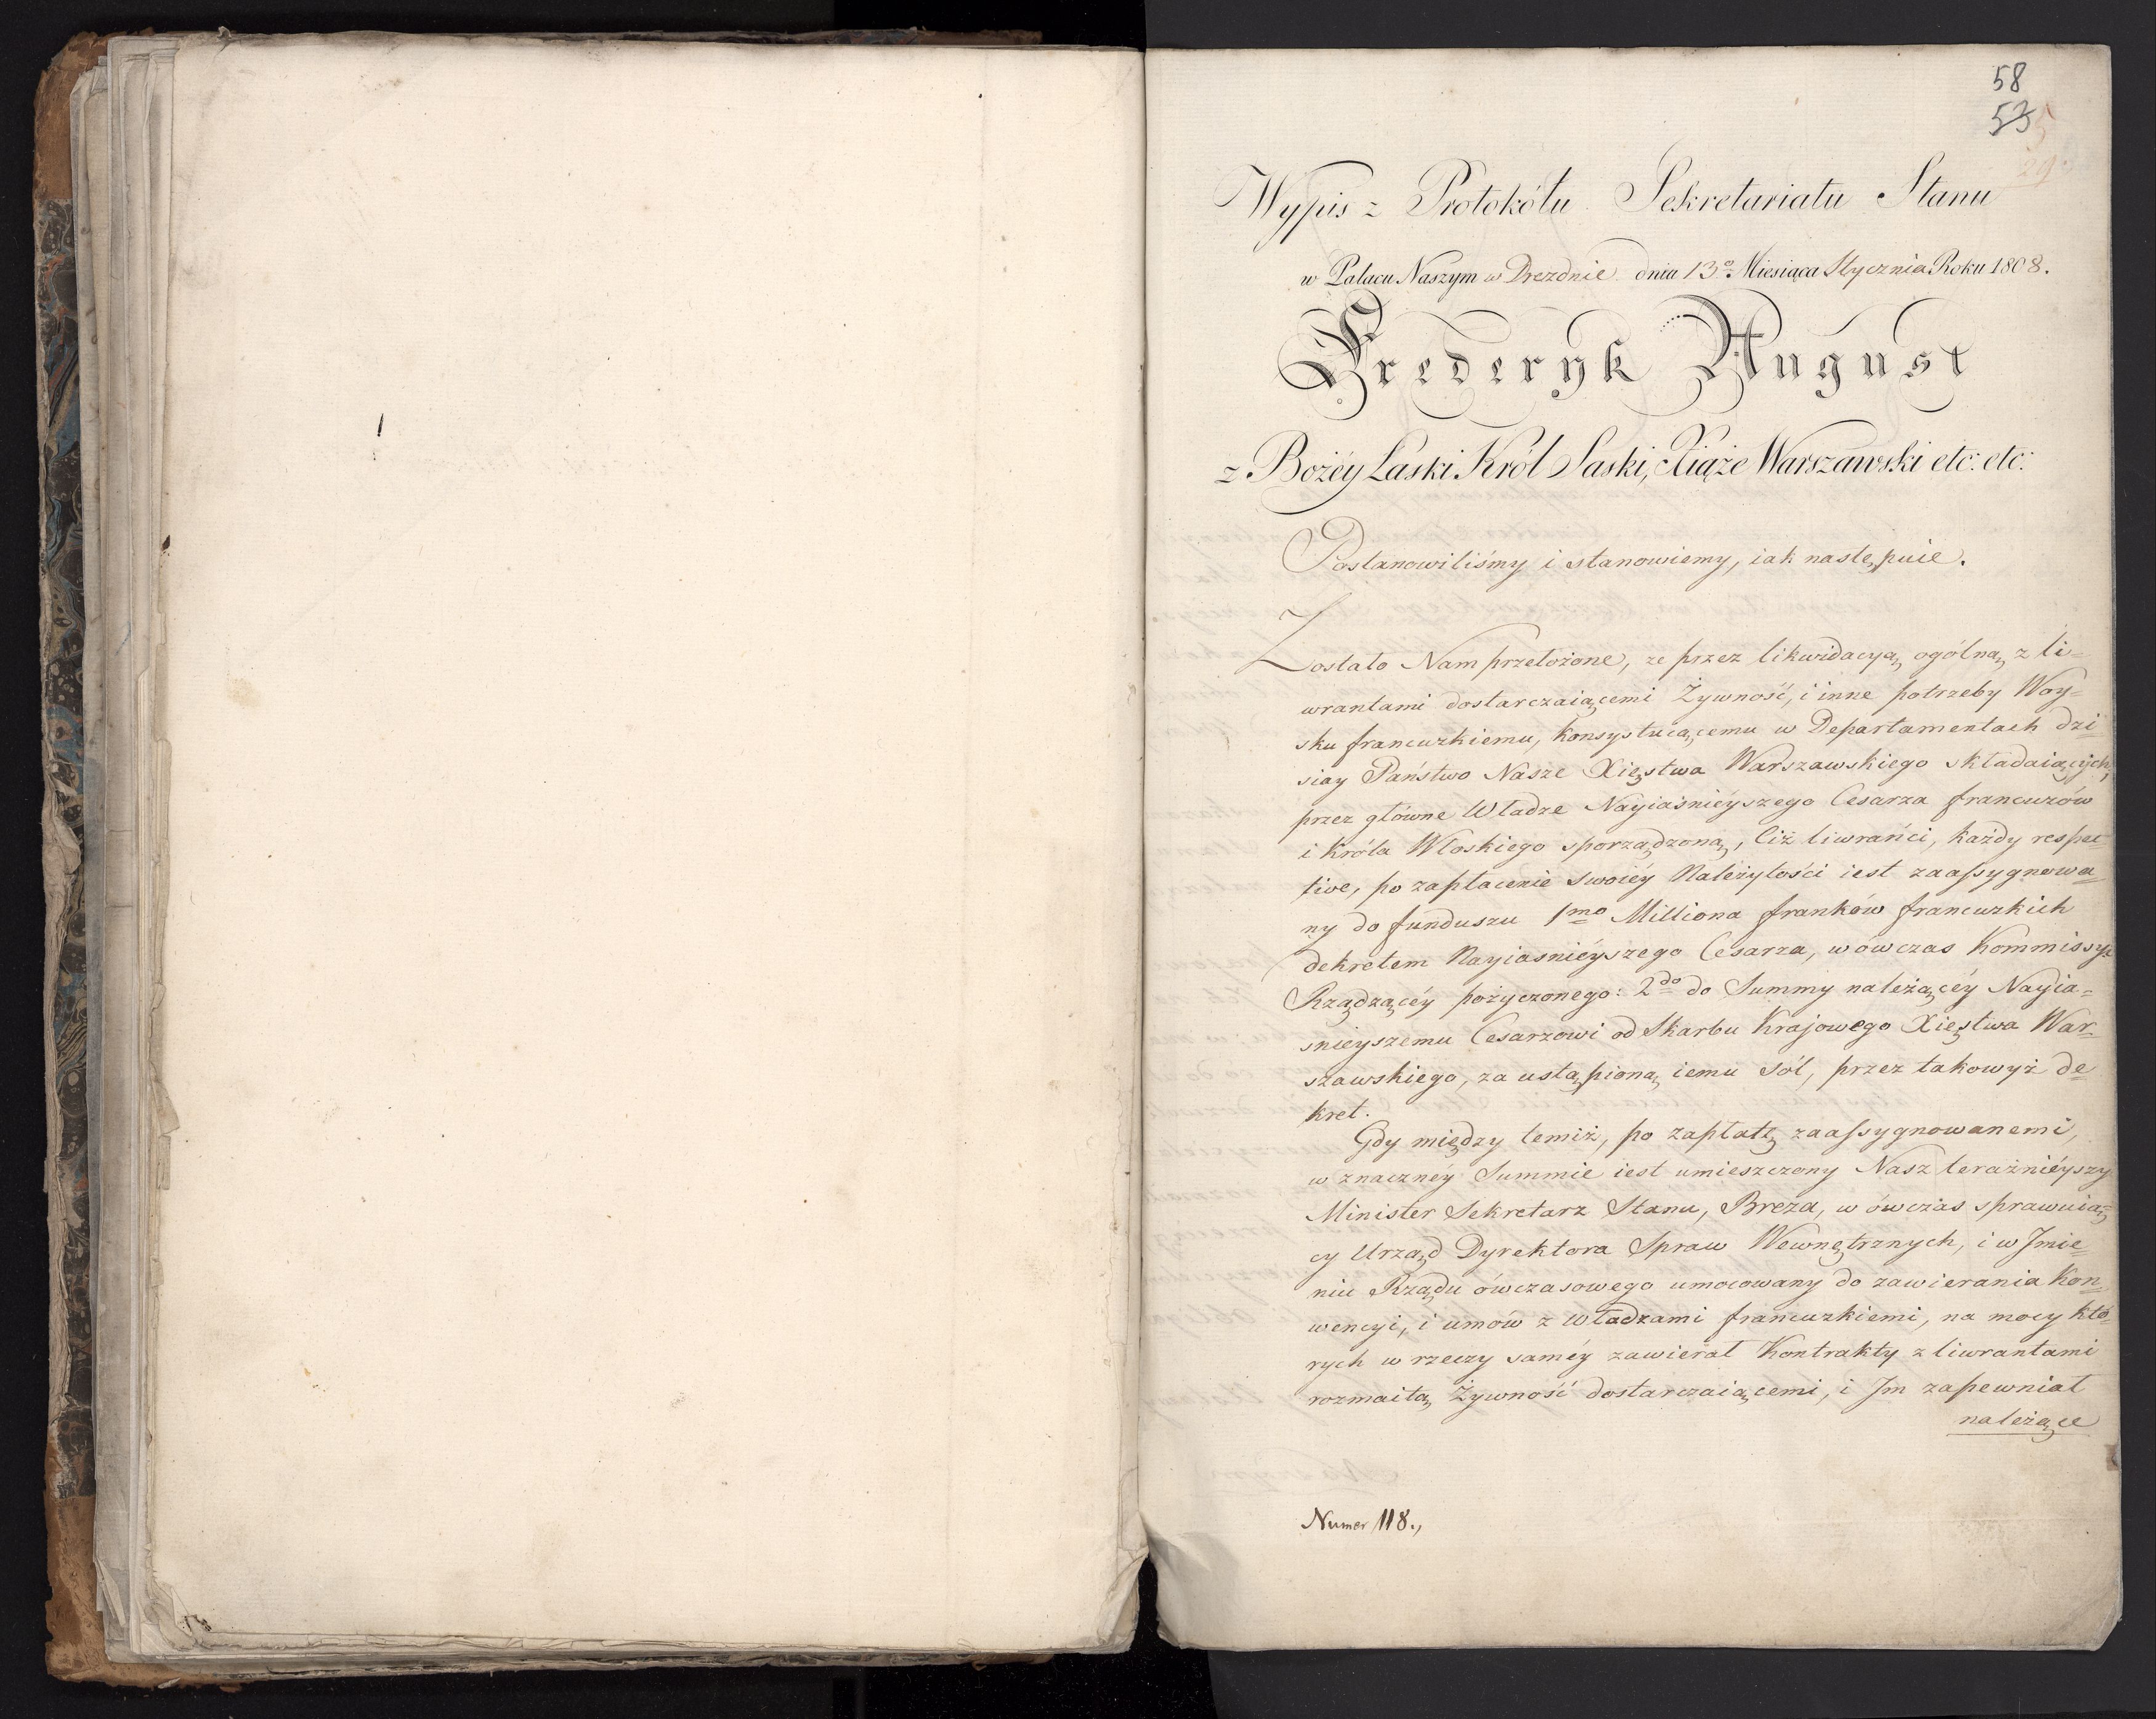 58
53
29
Wypis z Protokółu Sekretariatu Stanu
w Pałacu Naszym w Dreznie dnia 13º Miesiąca Stycznia Roku 1808.
Frederyk August
z Bożéy Łaski Król Saski, Xiąże Warszawski etc: etc:
Postanowiliśmy i stanowiemy, iak następuie.
Zostało Nam przełożone, ze przez likwidacyą ogólną z li=
wrantami dostarczaiącemi Żywność, i inne potrzeby Woy=
sku francuzkiemu, konsystuiącemu w Departamentach dzi=
siay Państwo Nasze Xięstwa Warszawskiego składaiących,
przez główne Władze Nayiaśnieyszego Cesarza francuzów
i Króla Włoskiego sporządzoną, Ciż liwrańci, każdy respec=
tive, po zapłacenie swoiéy Należytości iest zaassygnowa=
ny do funduszu 1mo Milliona franków francuzkich
dekretem Nayiasnieyszego Cesarza, wówczas Kommissyi
Rządzącéy pożyczonego: 2do do Summy należącéy Nayia=
snieyszemu Cesarzowi od Skarbu Krajowego Xięstwa War=
szawskiego, za ustąpioną iemu sól, przez takowyż de=
kret.
Gdy między temiż, po zapłatę zaassygnowanemi,
w znacznéy Summie iest umieszczony Nasz teraźnieyszy
Minister Sekretarz Stanu, Breza, w ówczas sprawuią=
cy Urząd Dyrektora Spraw Wewnętrznych, i w Jmie=
niu Rządu ówczasowego umocowany do zawierania Kon=
wencyi, i umów z Władzami francuzkiemi, na mocy któ=
rych w rzeczy saméy zawierał Kontrakty z liwrantami
rozmaitą Żywność dostarczaiącemi, i Jm zapewniał
należące
Numer 118.,